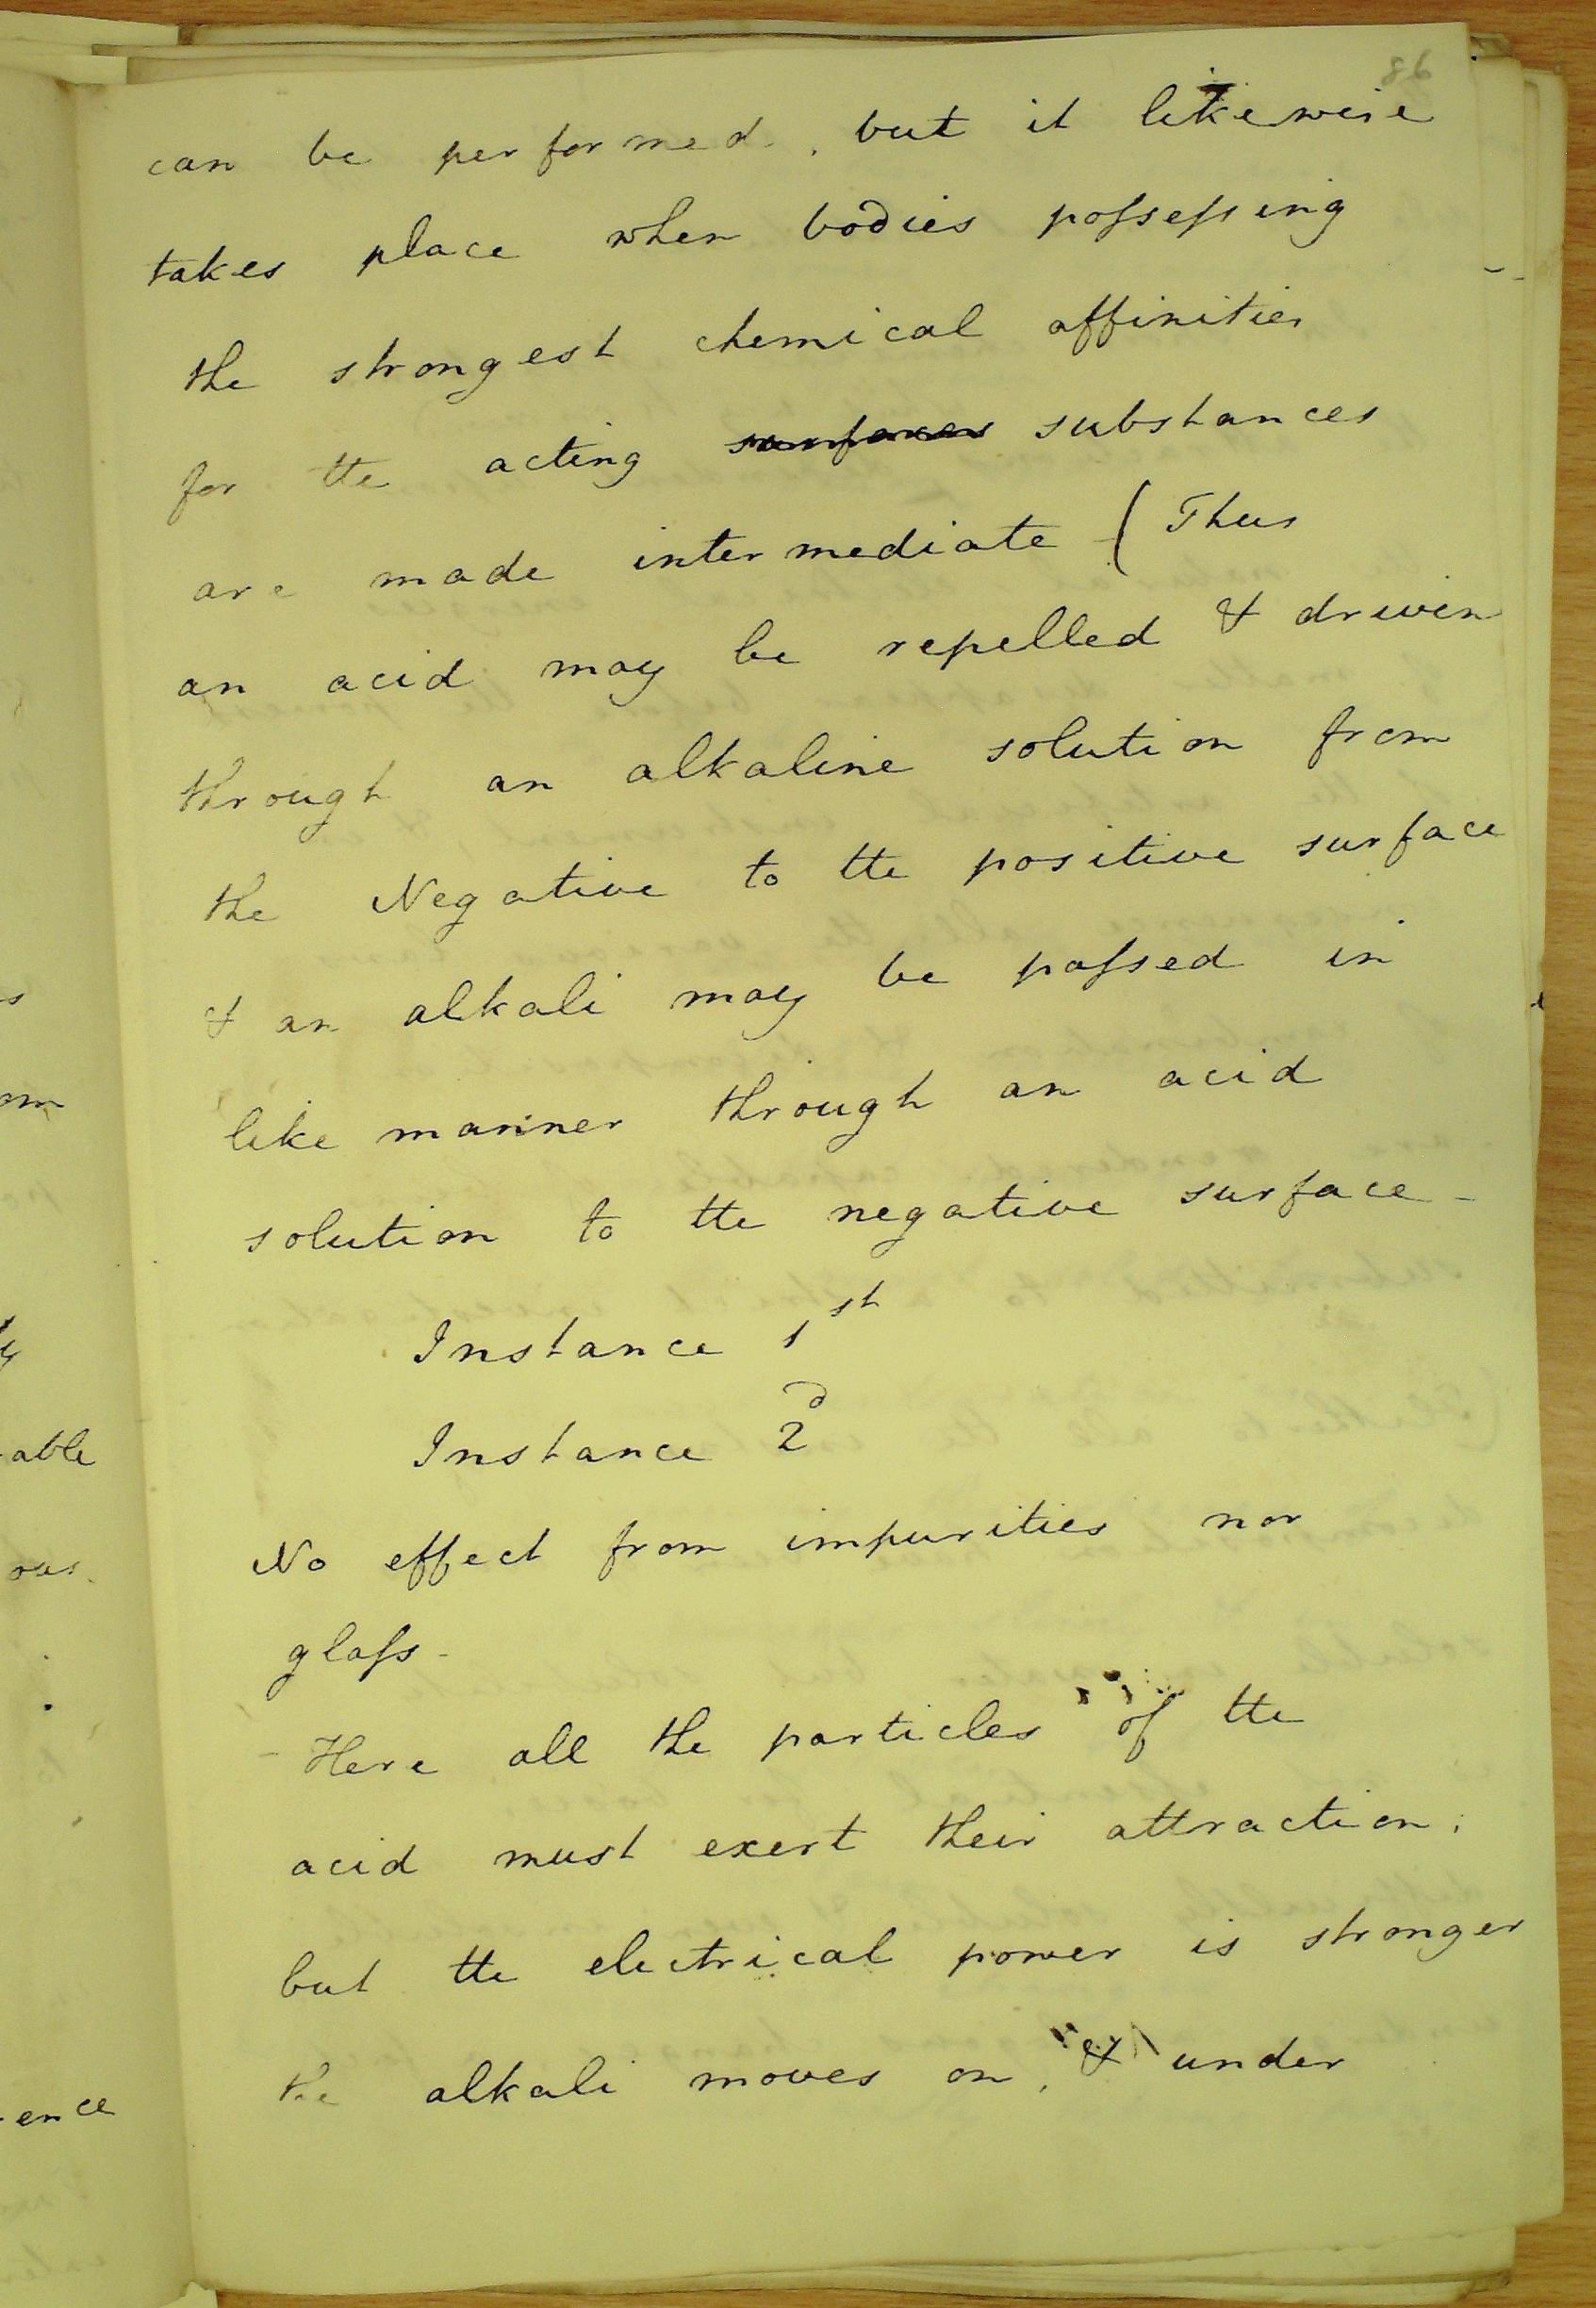 86
can be performed, but it likewise
takes place when bodies possessing
the strongest chemical affinities
for the acting surfaces substances
are made intermediate (Thus
an acid may be repelled & driven
through an alkaline solution from
the Negative to the positive surface
& an alkali may be passed in
like manner through an acid
solution to the negative surface -
Instance 1st
Instance 2d
No effect from impurities nor
glass -
- Here all the particles of the
acid must exert their attraction;
but the electrical power is stronger
the alkali moves on, & under
om
able
ous
ence